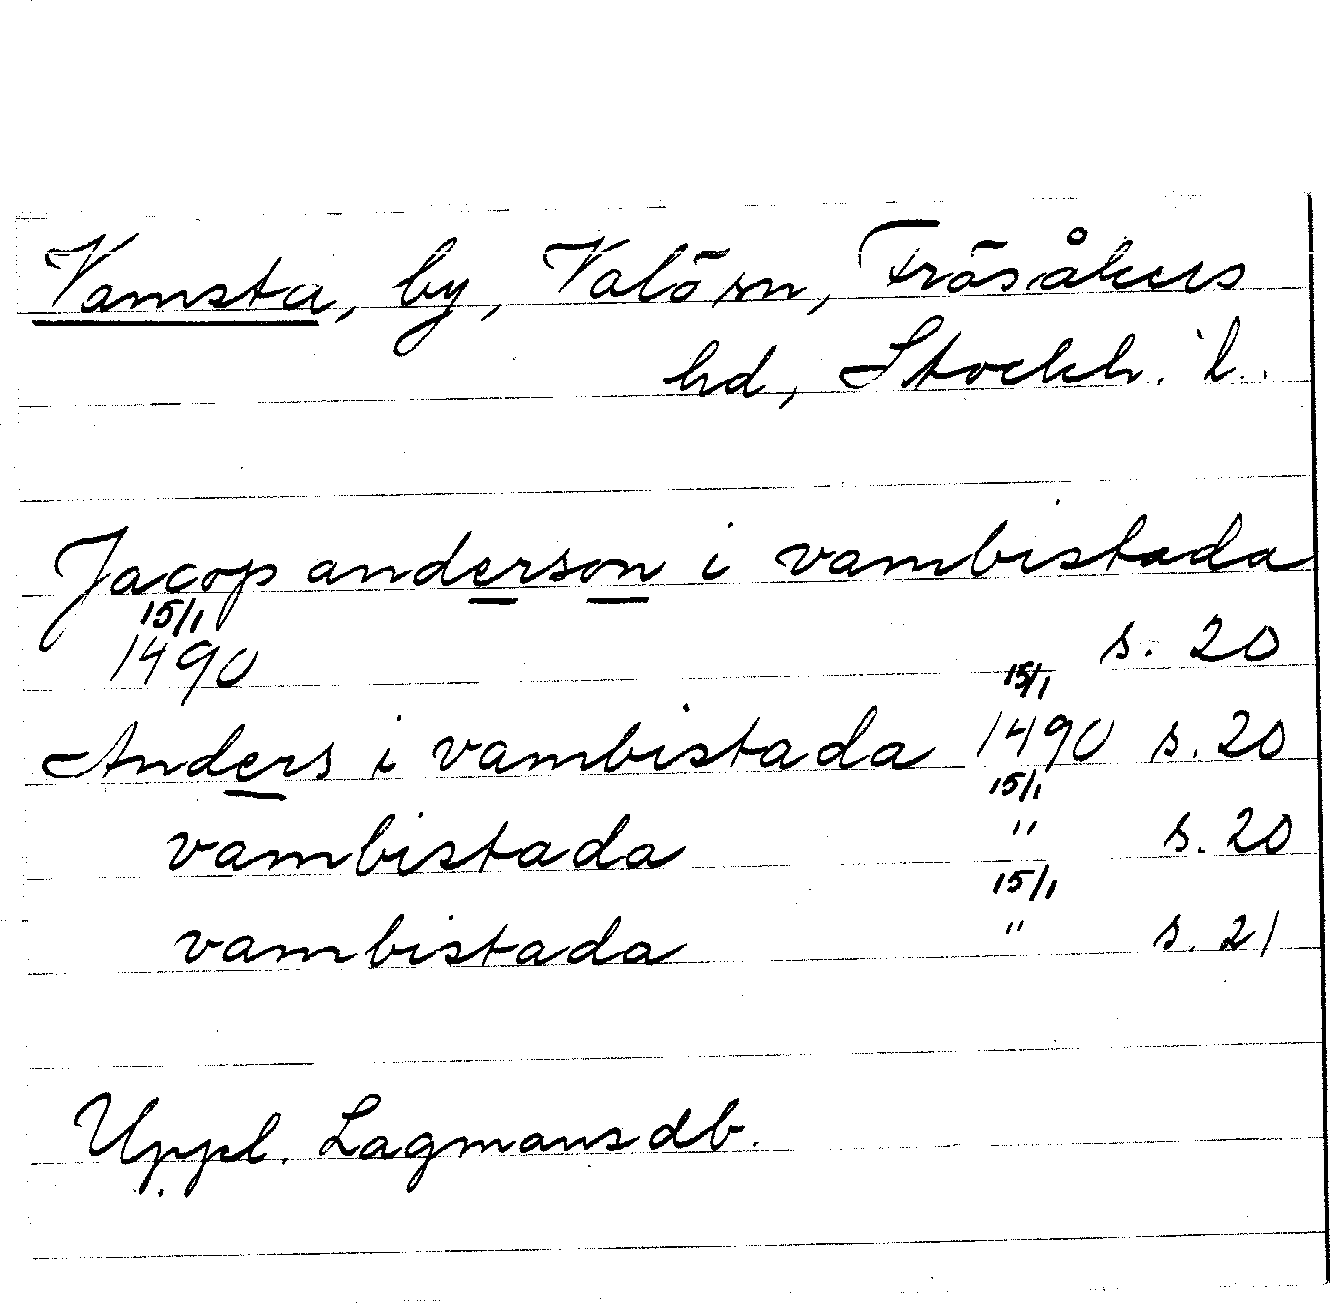 Vamsta, by, Valö sn, Frösåkers
hd, Stockh. l.
Jacop anderson i vambistada
15/1
1490 s. 20
15/1
Anders i vambistada 1490 s. 20
15/1
vambistada " s. 20
15/1
vambistada " s. 21
Uppl. Lagmansdb.